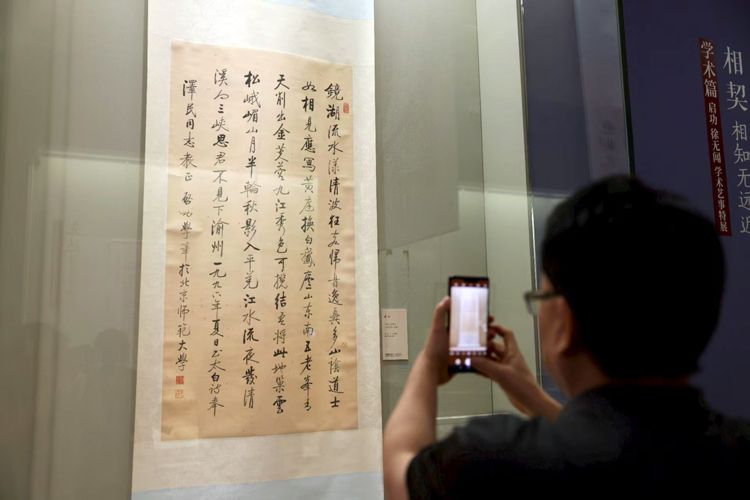 相契 相知无远近
学术篇 启功 徐无闻 学术艺事特展
鏡湖流水漾清波狂客歸舟逸興多山陰道士
如相見應寫黃庭換白鵝廬山東南五老峰青
天削出金芙蓉九江秀色可攬結吾將此地巢雲
松峨嵋山月半輪秋影入平羌江水流夜發清
溪向三峽思君不見下渝州一九九六年夏日書太白詩奉
澤民同志教正 啟功學筆於北京師範大學